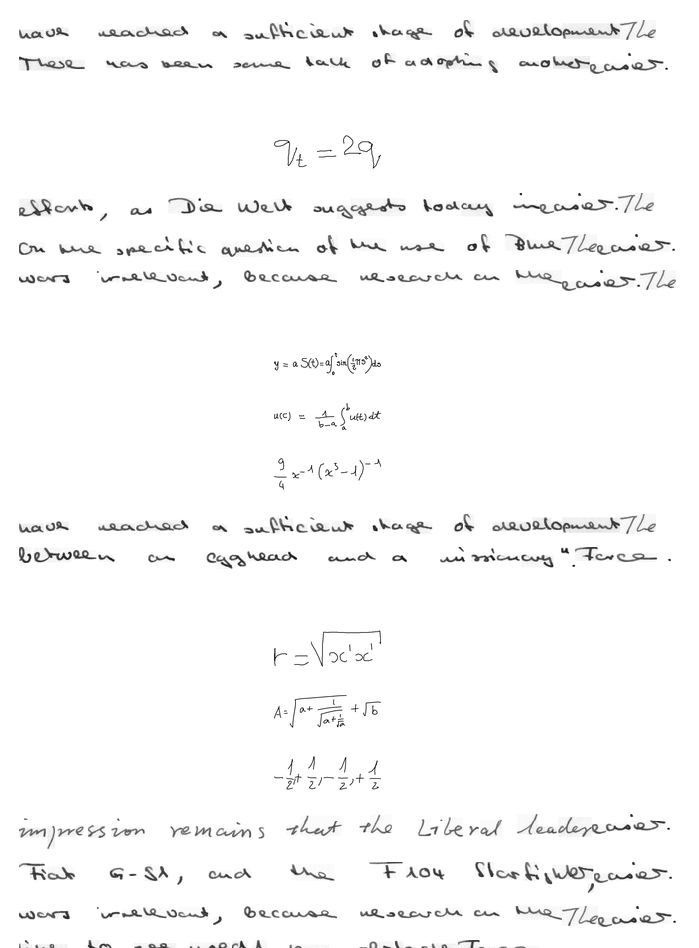 have reached a sufficient stage of development The
There has been some talk of adopting another easier.
q_t = 2q
efforts, as Die Welt suggests today in easier. The
On the specific question of the use of Blue The easier.
wars irrelevant, because research on the easier. The
y = a S(t) = a∫_0^t sin(½πs²)ds
u(c) = \frac{1}{b-a} ∫_a^b u(t) dt
\frac{9}{4} x^{-1} (x^3 - 1)^{-1}
have reached a sufficient stage of development The
between an egghead and a missionary". Force.
r = √(x'x')
A = \sqrt{a + \frac{1}{\sqrt{a + \frac{1}{\sqrt{a}}}}} + √b
-\frac{1}{2}, +\frac{1}{2}, -\frac{1}{2}, +\frac{1}{2}
impression remains that the Liberal leader easier.
Fiat G-91, and the F104 Starfighter, easier.
wars irrelevant, because research on the The easier.